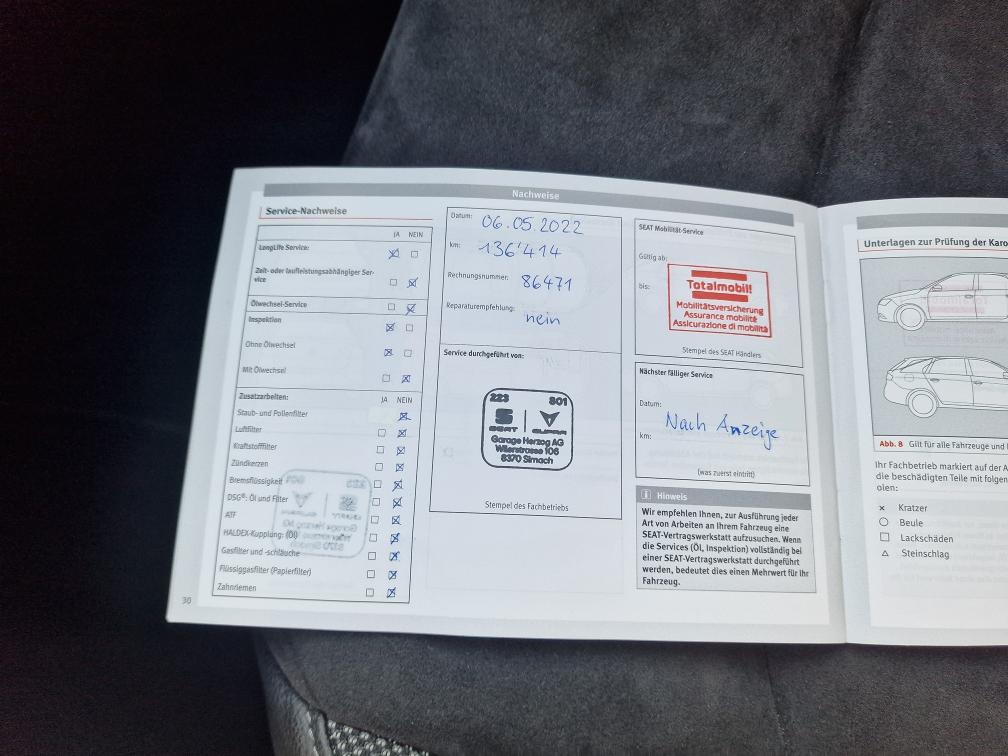 Nachweise
Service-Nachweise
JA NEIN
LongLife Service:
Zeit- oder laufleistungsabhängiger Ser-
vice
Ölwechsel-Service
Inspektion
Ohne Ölwechsel
Mit Ölwechsel
Zusatzarbeiten: JA NEIN
Staub- und Pollenfilter
Luftfilter
Kraftstofffilter
Zündkerzen
Bremsflüssigkeit
DSG®: Öl und Filter
ATF
HALDEX-Kupplung: (Öl)
Gasfilter und -schläuche
Flüssiggasfilter (Papierfilter)
Zahnriemen
30
Datum: 06.05.2022
km: 136'414
Rechnungsnummer: 86471
Reparaturempfehlung: nein
Service durchgeführt von:
223 801
SEAT CUPRA
Garage Herzog AG
Wilerstrasse 106
8370 Sirnach
Stempel des Fachbetriebs
SEAT Mobilität-Service
Gültig ab:
bis:
Totalmobil!
Mobilitätsversicherung
Assurance mobilité
Assicurazione di mobilità
Stempel des SEAT Händlers
Nächster fälliger Service
Datum:
Nach Anzeige
km:
(was zuerst eintritt)
Hinweis
Wir empfehlen Ihnen, zur Ausführung jeder
Art von Arbeiten an Ihrem Fahrzeug eine
SEAT-Vertragswerkstatt aufzusuchen. Wenn
die Services (Öl, Inspektion) vollständig bei
einer SEAT-Vertragswerkstatt durchgeführt
werden, bedeutet dies einen Mehrwert für Ihr
Fahrzeug.
Unterlagen zur Prüfung der Karo
Abb. 8 Gilt für alle Fahrzeuge und
Ihr Fachbetrieb markiert auf der A
die beschädigten Teile mit folgen
olen:
Kratzer
Beule
Lackschäden
Steinschlag